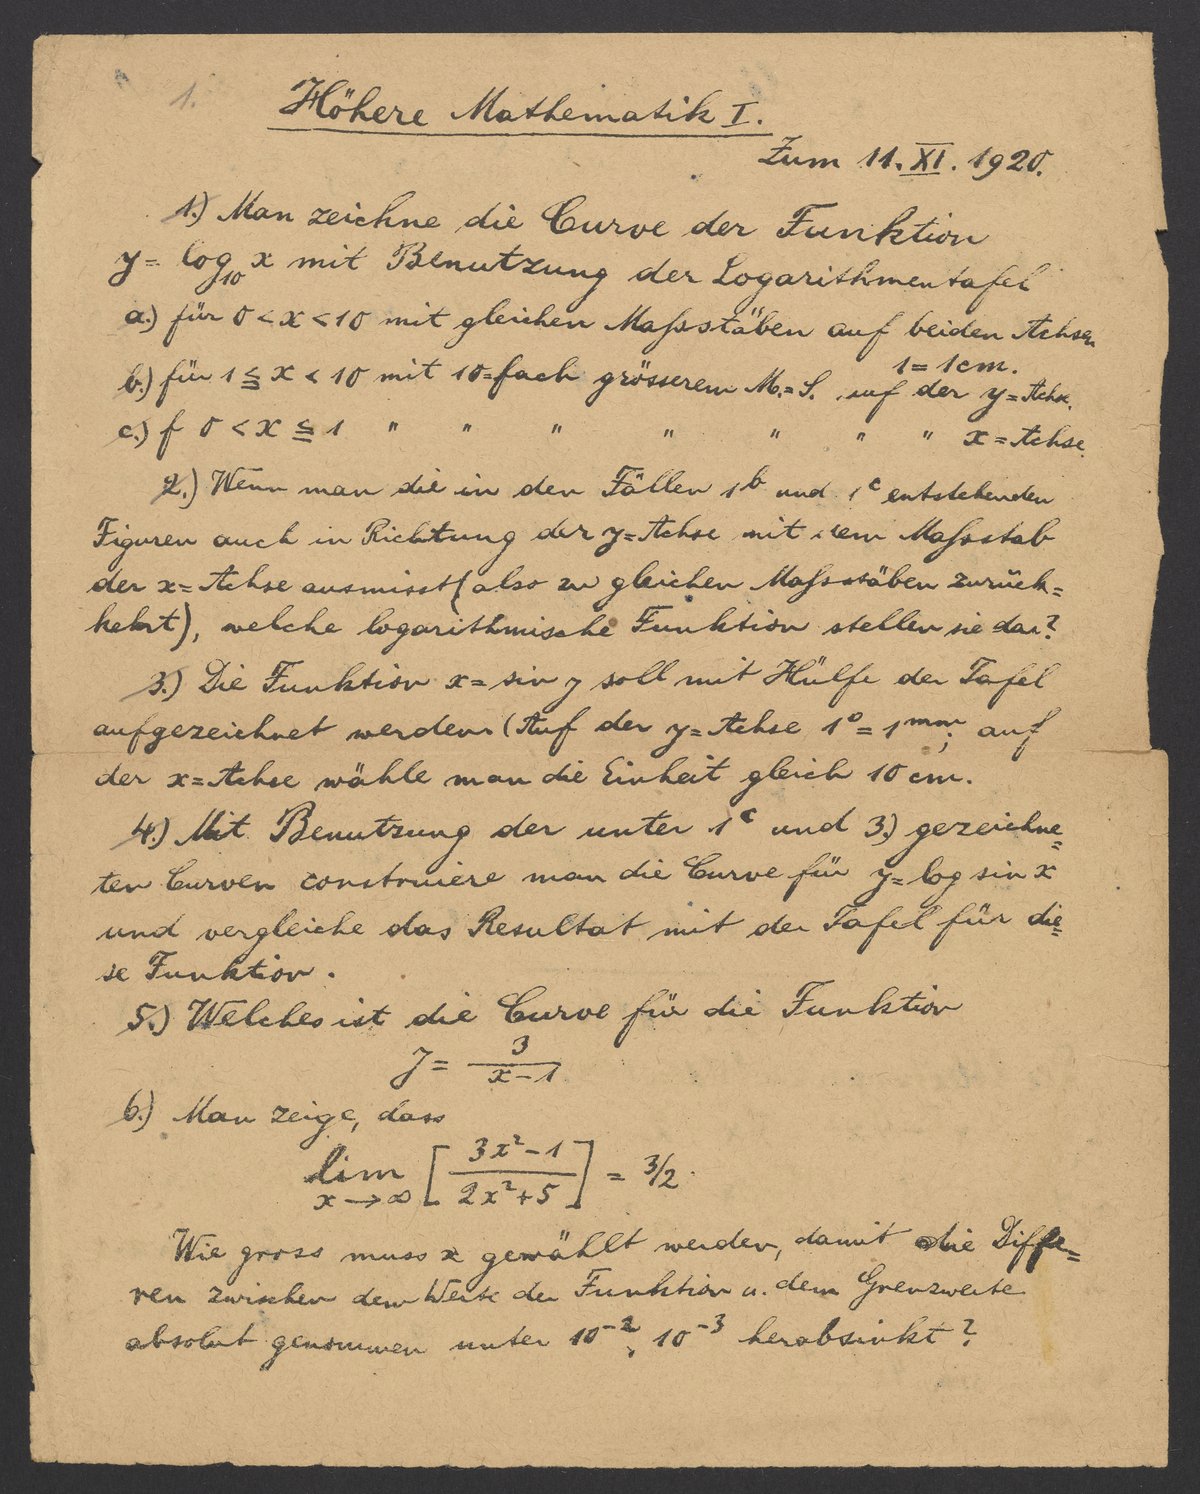 1.
Höhere Mathematik I.
Zum 11. XI. 1920.
1.) Man zeichne die Curve der Funktion
y = log₁₀ x mit Benutzung der Logarithmentafel
a.) für 0 < x < 10 mit gleichen Maßstäben auf beiden Achsen
1 = 1 cm.
b.) für 1 ≦ x < 10 mit 10=fach grösserem M.=S. auf der y=Achse.
c.) f 0 < x ≦ 1 " " " " " " " x = Achse.
2.) Wenn man die in den Fällen 1ᵇ und 1ᶜ entstehenden
Figuren auch in Richtung der y=Achse mit dem Maßstab
der x=Achse ausmisst (also zu gleichen Maßstäben zurück=
kehrt), welche logarithmische Funktion stellen sie dar?
3.) Die Funktion x = sin y soll mit Hülfe der Tafel
aufgezeichnet werden. (Auf der y=Achse 1° = 1 mm; auf
der x=Achse wähle man die Einheit gleich 10 cm.
4.) Mit Benutzung der unter 1ᶜ und 3.) gezeichne=
ten Curven construiere man die Curve für y = log sin x
und vergleiche das Resultat mit der Tafel für die=
se Funktion.
5.) Welches ist die Curve für die Funktion
y = 3/(x-1)
6.) Man zeige, dass
lim x→∞ [(3x²-1)/(2x²+5)] = 3/2.
Wie gross muss x gewählt werden, damit die Diffe=
ren zwischen dem Werte der Funktion u. dem Grenzwerte
absolut genommen unter 10⁻², 10⁻³ herabsinkt?